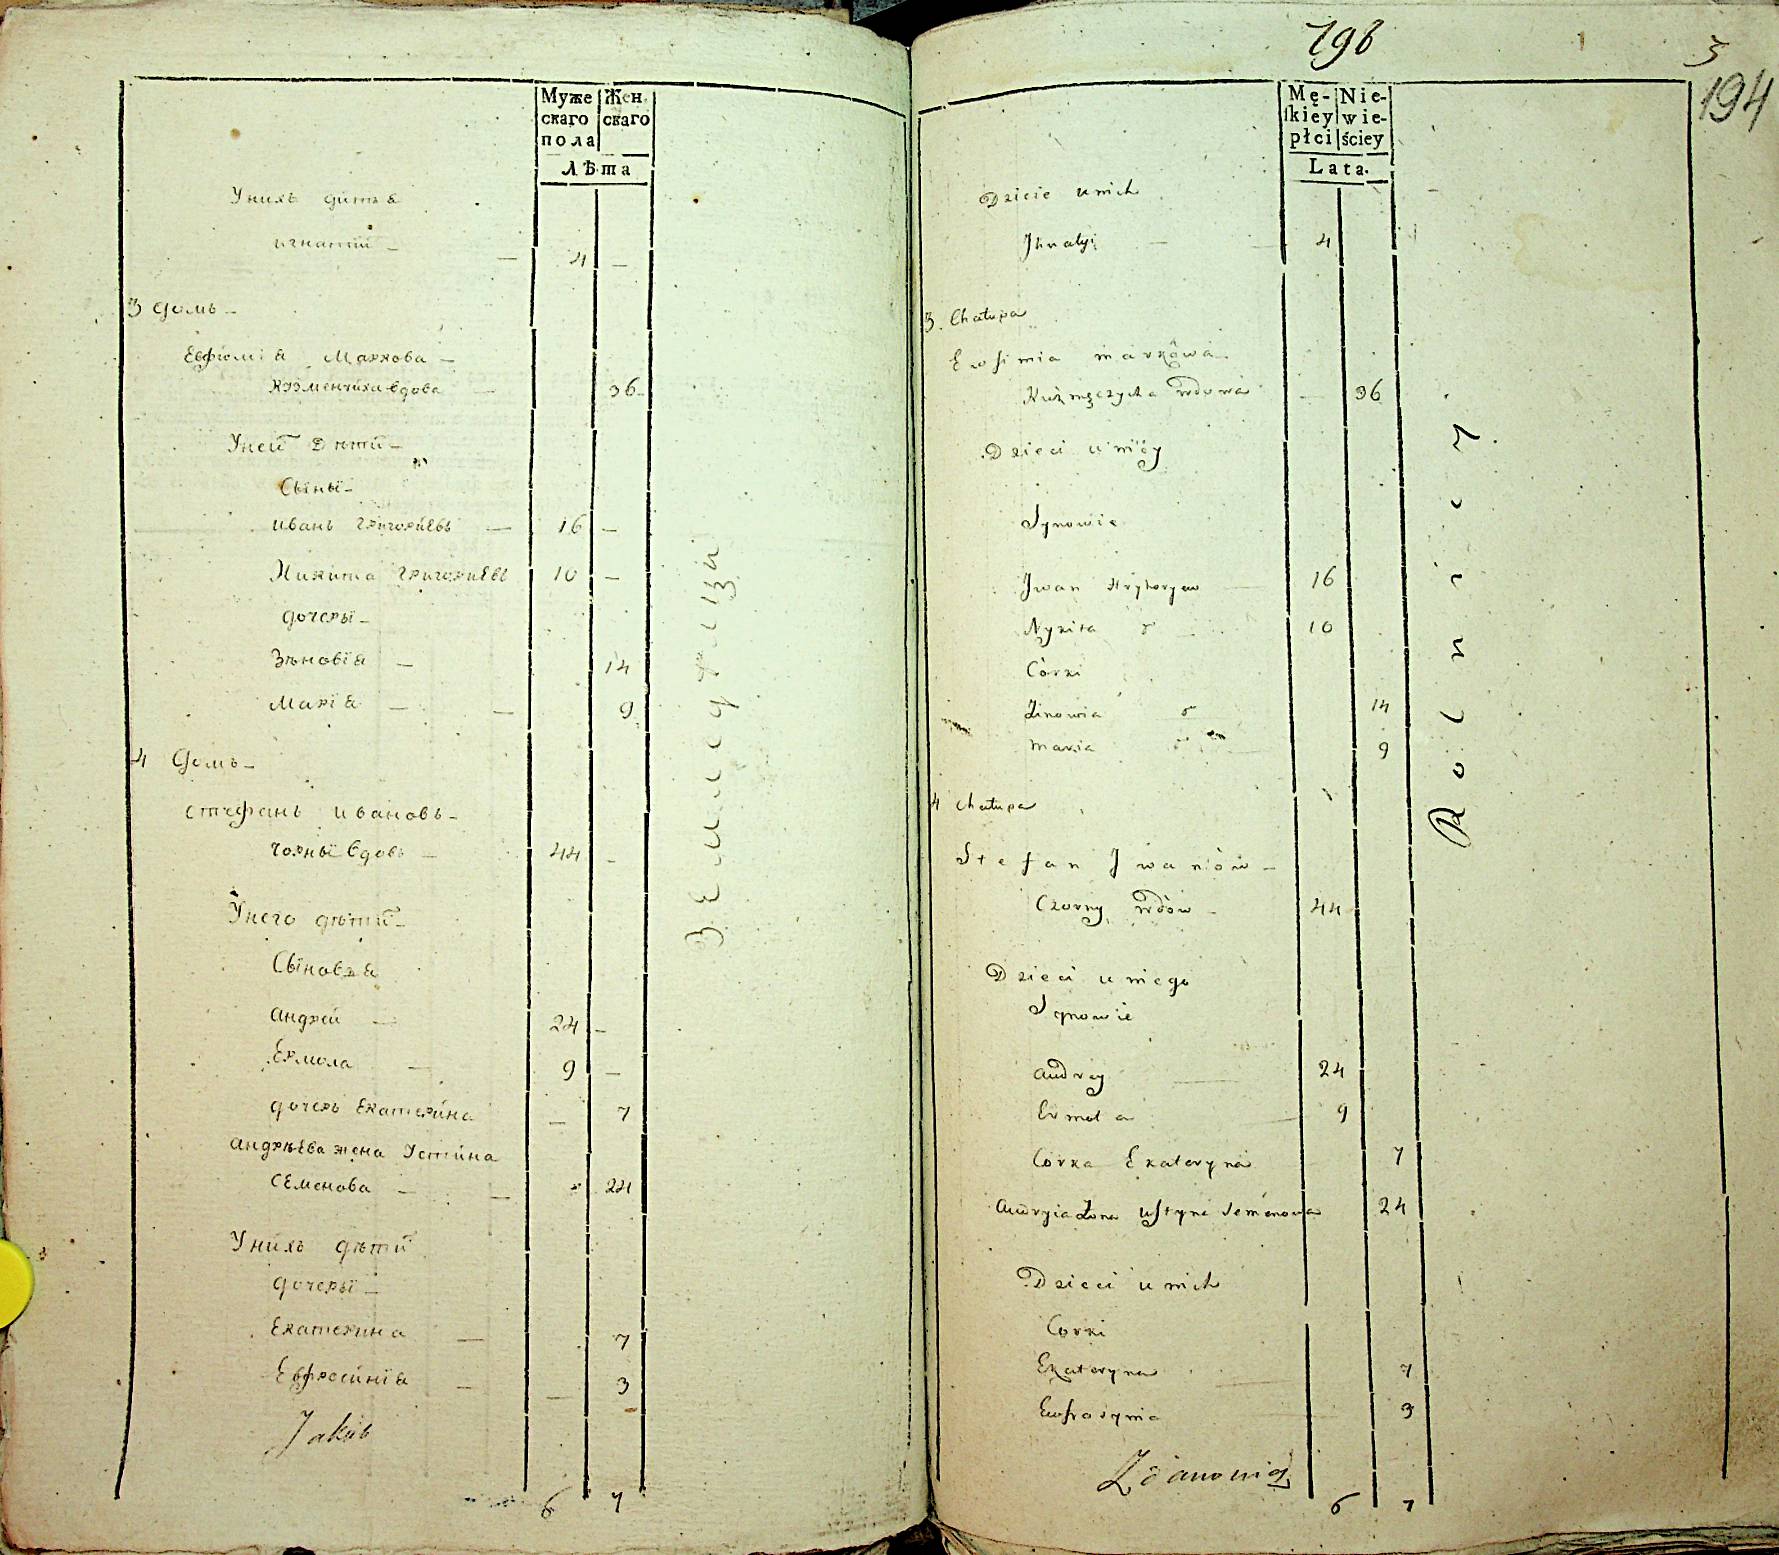 Муже Жен.
скаго скаго
пола
Лѣта
Унихъ дитя
игнатїй — 4 —
3 домъ —
Евфимїя Маркова —
Кузменчиха вдова — 36
Уней Дѣти —
Сыны —
иванъ григорїевъ — 16 —
Никита григориевъ 10 —
дочеры —
Зѣновїя — 14
Марїя — — 9
4 домъ —
стефанъ ивановъ —
чорный вдовъ — 44 —
Унего дѣтий —
Сыновя
андрей — 24 —
Ермола — 9 —
дочерь Екатерина — 7
андрѣева жена Устина
Семенова — — 24
Унихъ дѣти
дочеры —
Екатерина — 7
Евфросинїя — — 3
Jakub
6 7
Земледѣлцы
796
3
194
Mę- Nie-
skiey wie-
płci ściey
Lata.
Dzicie unich
Jhnatyi — 4
3. Chałupa
Ewfimia markowa
Kuźmęczycha wdowa — 36
Dzieci uniey
Synowie
Jwan Hryhoryew 16
Nykita 10
Córki
Zinowia 14
maria 9
4 Chałupa
Stefan Jwanów —
Czorny wdów — 44
Dzieci uniego
Synowie
andrey 24
Ermoła 9
Corka Ekateryna 7
Andryia Żona Ustyna Semenowa 24
Dzieci unich
Corki
Ekateryna 7
Eufrosynia 3
Zdanowicz
6 7
Rolnicy